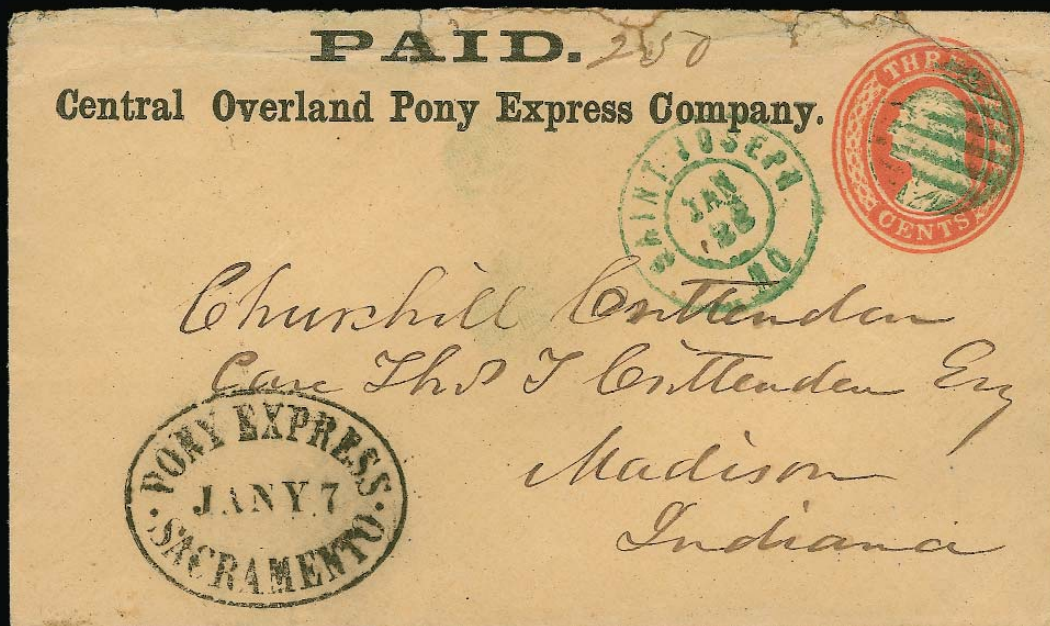 PAID. 250
Central Overland Pony Express Company.
THREE CENTS
SAINT JOSEPH MO
JAN
22
Churchill Crittenden
Care Thos T Crittenden Esq
Madison
Indiana
PONY EXPRESS
JANY 7
SACRAMENTO